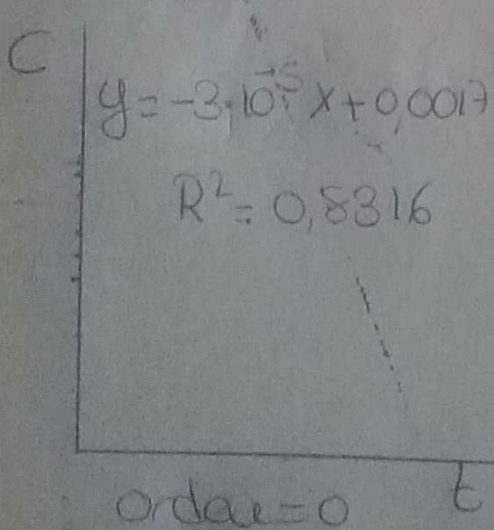 C
y = -3·10⁻⁵ x + 0,0017
R² = 0,8316
t
orden = 0